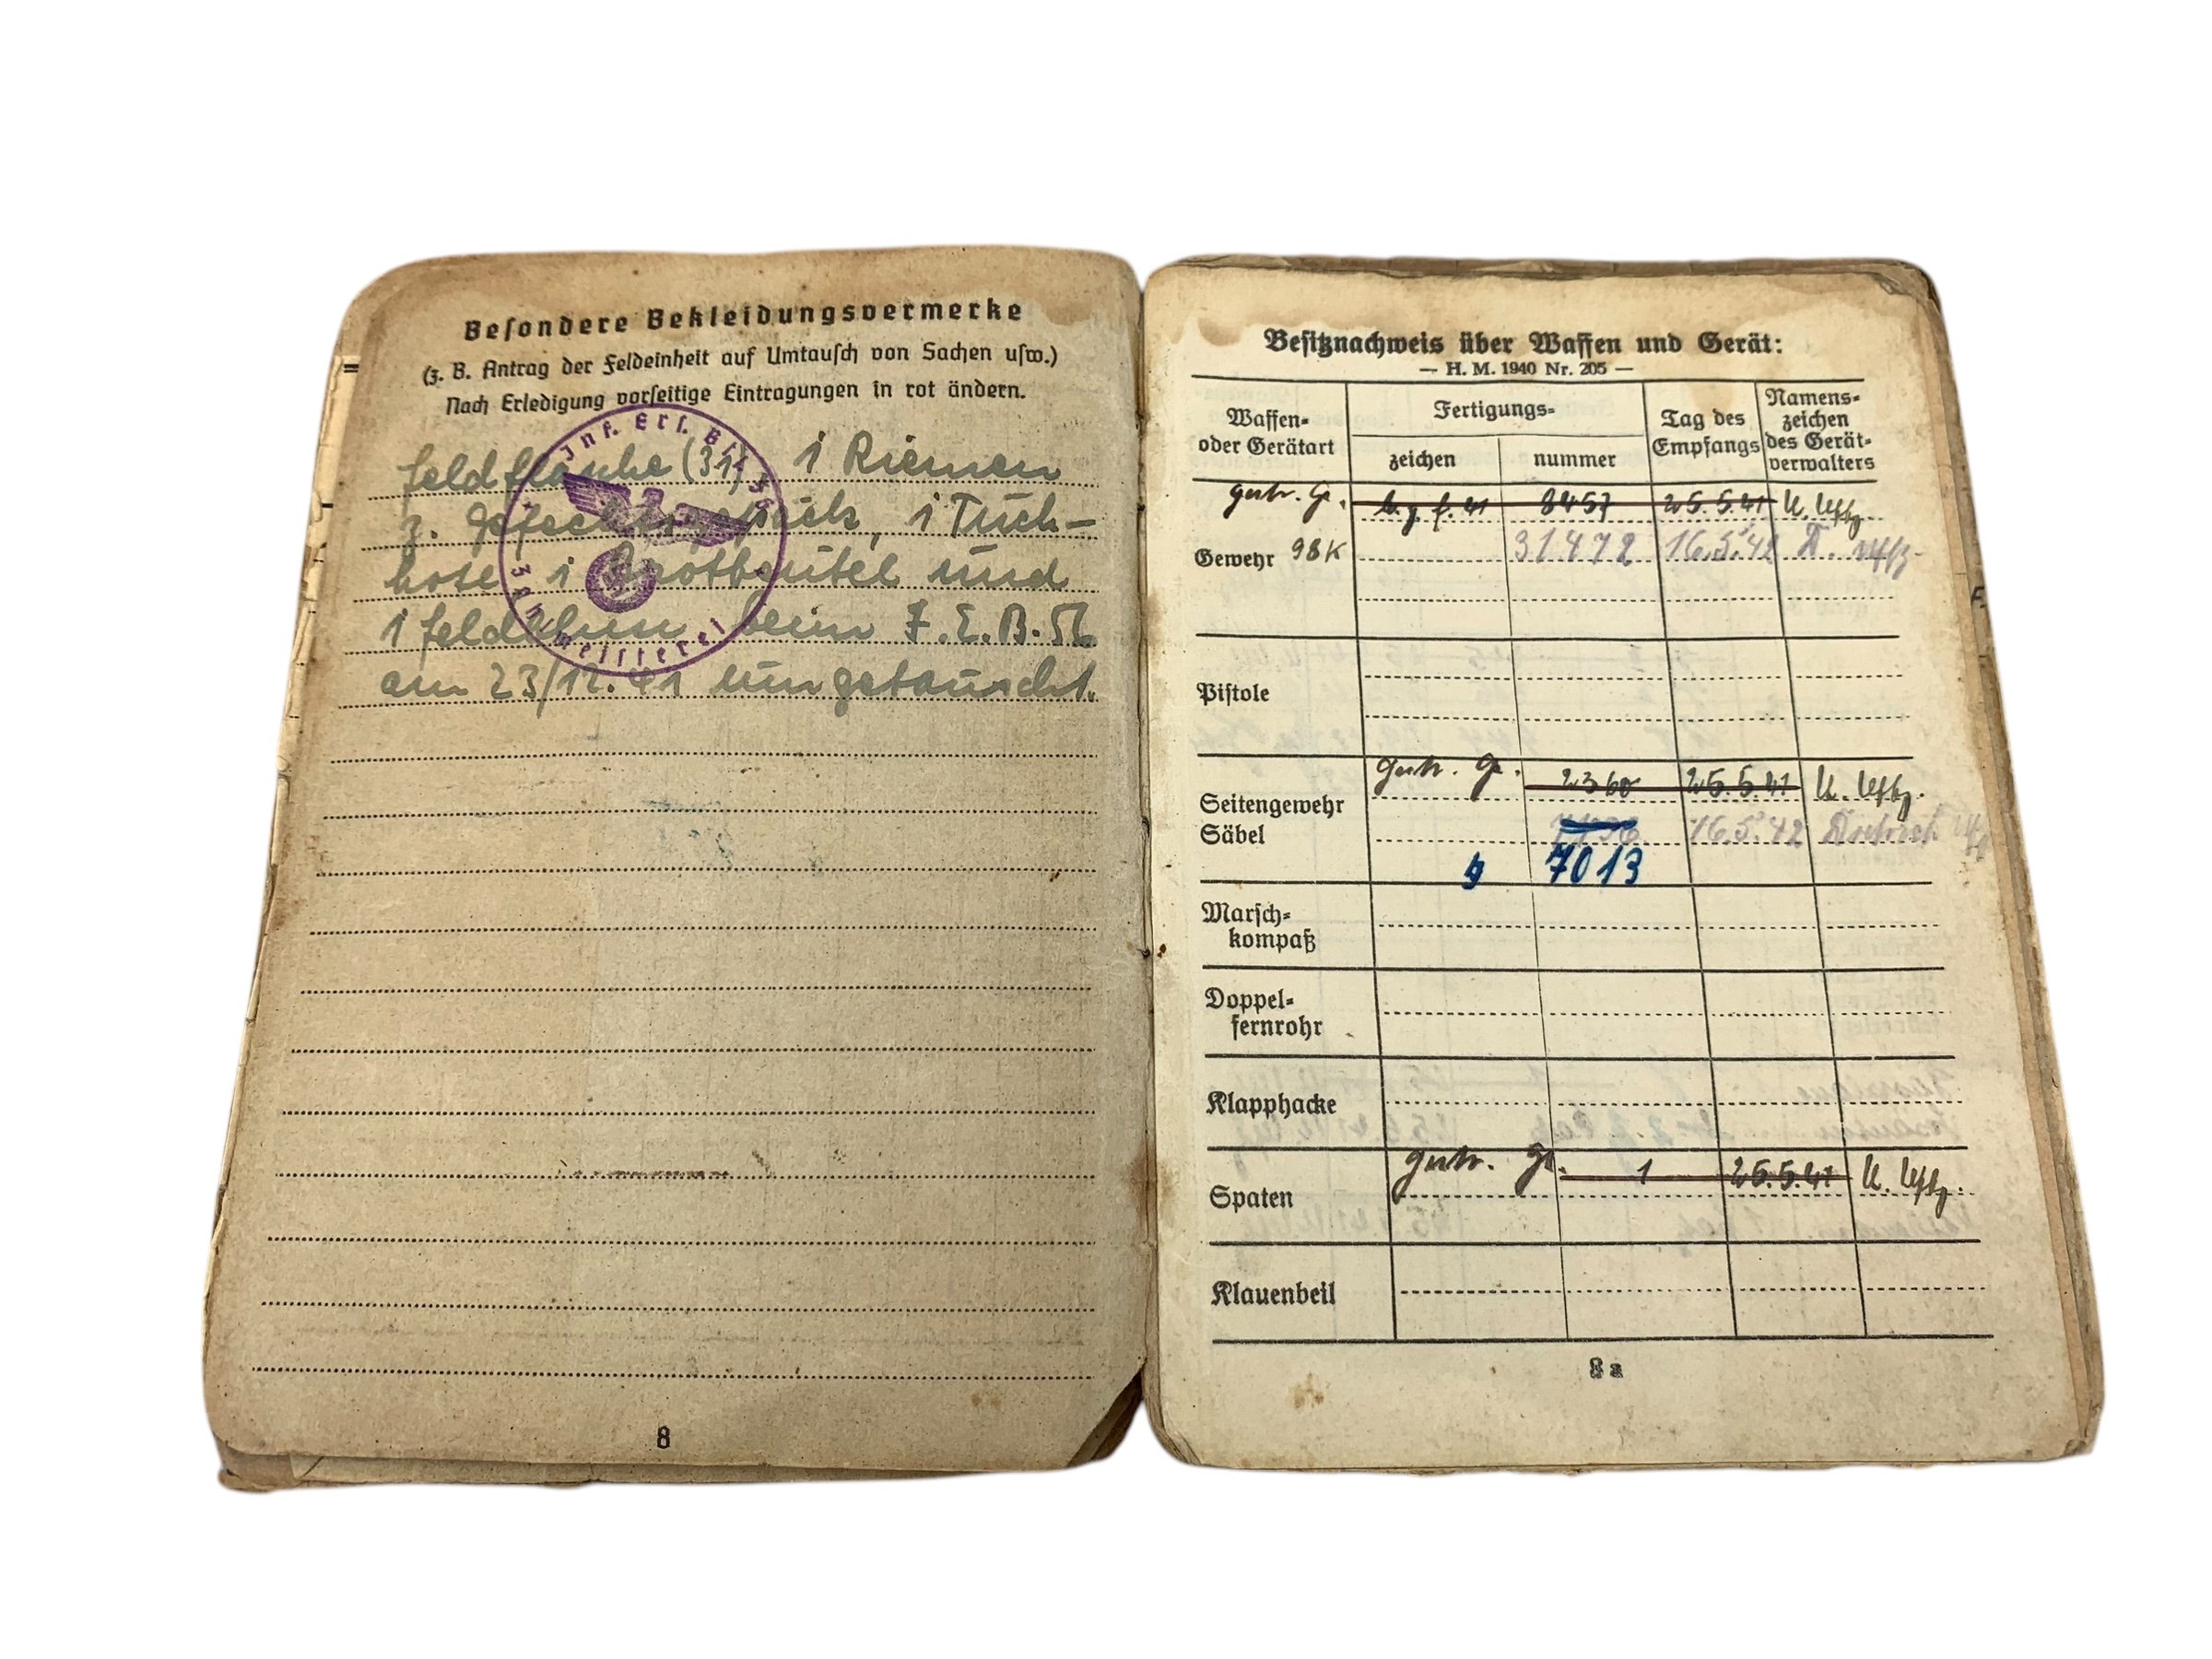 Besondere Bekleidungsvermerke
(z. B. Antrag der Feldeinheit auf Umtausch von Sachen usw.)
Nach Erledigung vorseitige Eintragungen in rot ändern.
Inf. Ers. Btl. 56
Zahlmeisterei
Feldflasche (31), 1 Riemen
z. Gefechtsgepäck, 1 Tuch-
hose, 1 Brotbeutel und
1 Feldbluse beim J.E.B. 56
am 23/12.41 umgetauscht.
8
Besitznachweis über Waffen und Gerät:
— H. M. 1940 Nr. 205 —
Waffen- oder Gerätart
Fertigungs-
zeichen
nummer
Tag des Empfangs
Namenszeichen des Gerätverwalters
gestr. 8457 25.5.41
Gewehr 98K 31472 16.5.42
Pistole
gestr. 2360 25.5.41
Seitengewehr
Säbel 16.5.42
7013
Marschkompaß
Doppelfernrohr
Klapphacke
gestr. 1 25.5.41
Spaten
Klauenbeil
8 a